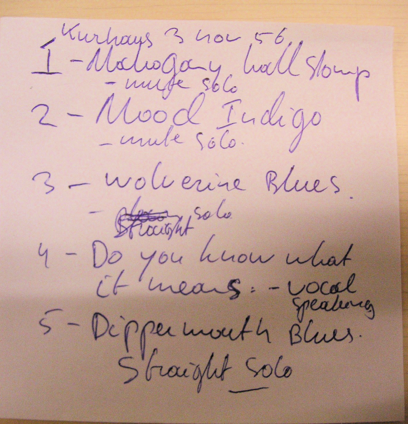 Kurhaus 3 nov 56.
1 - Mahogany hall stomp
- mute solo
2 - Mood Indigo
- mute solo.
3 - Wolverine Blues.
- solo
Straight
4 - Do you know what
it means: - vocal
speaking
5 - Dippermouth Blues.
Straight solo